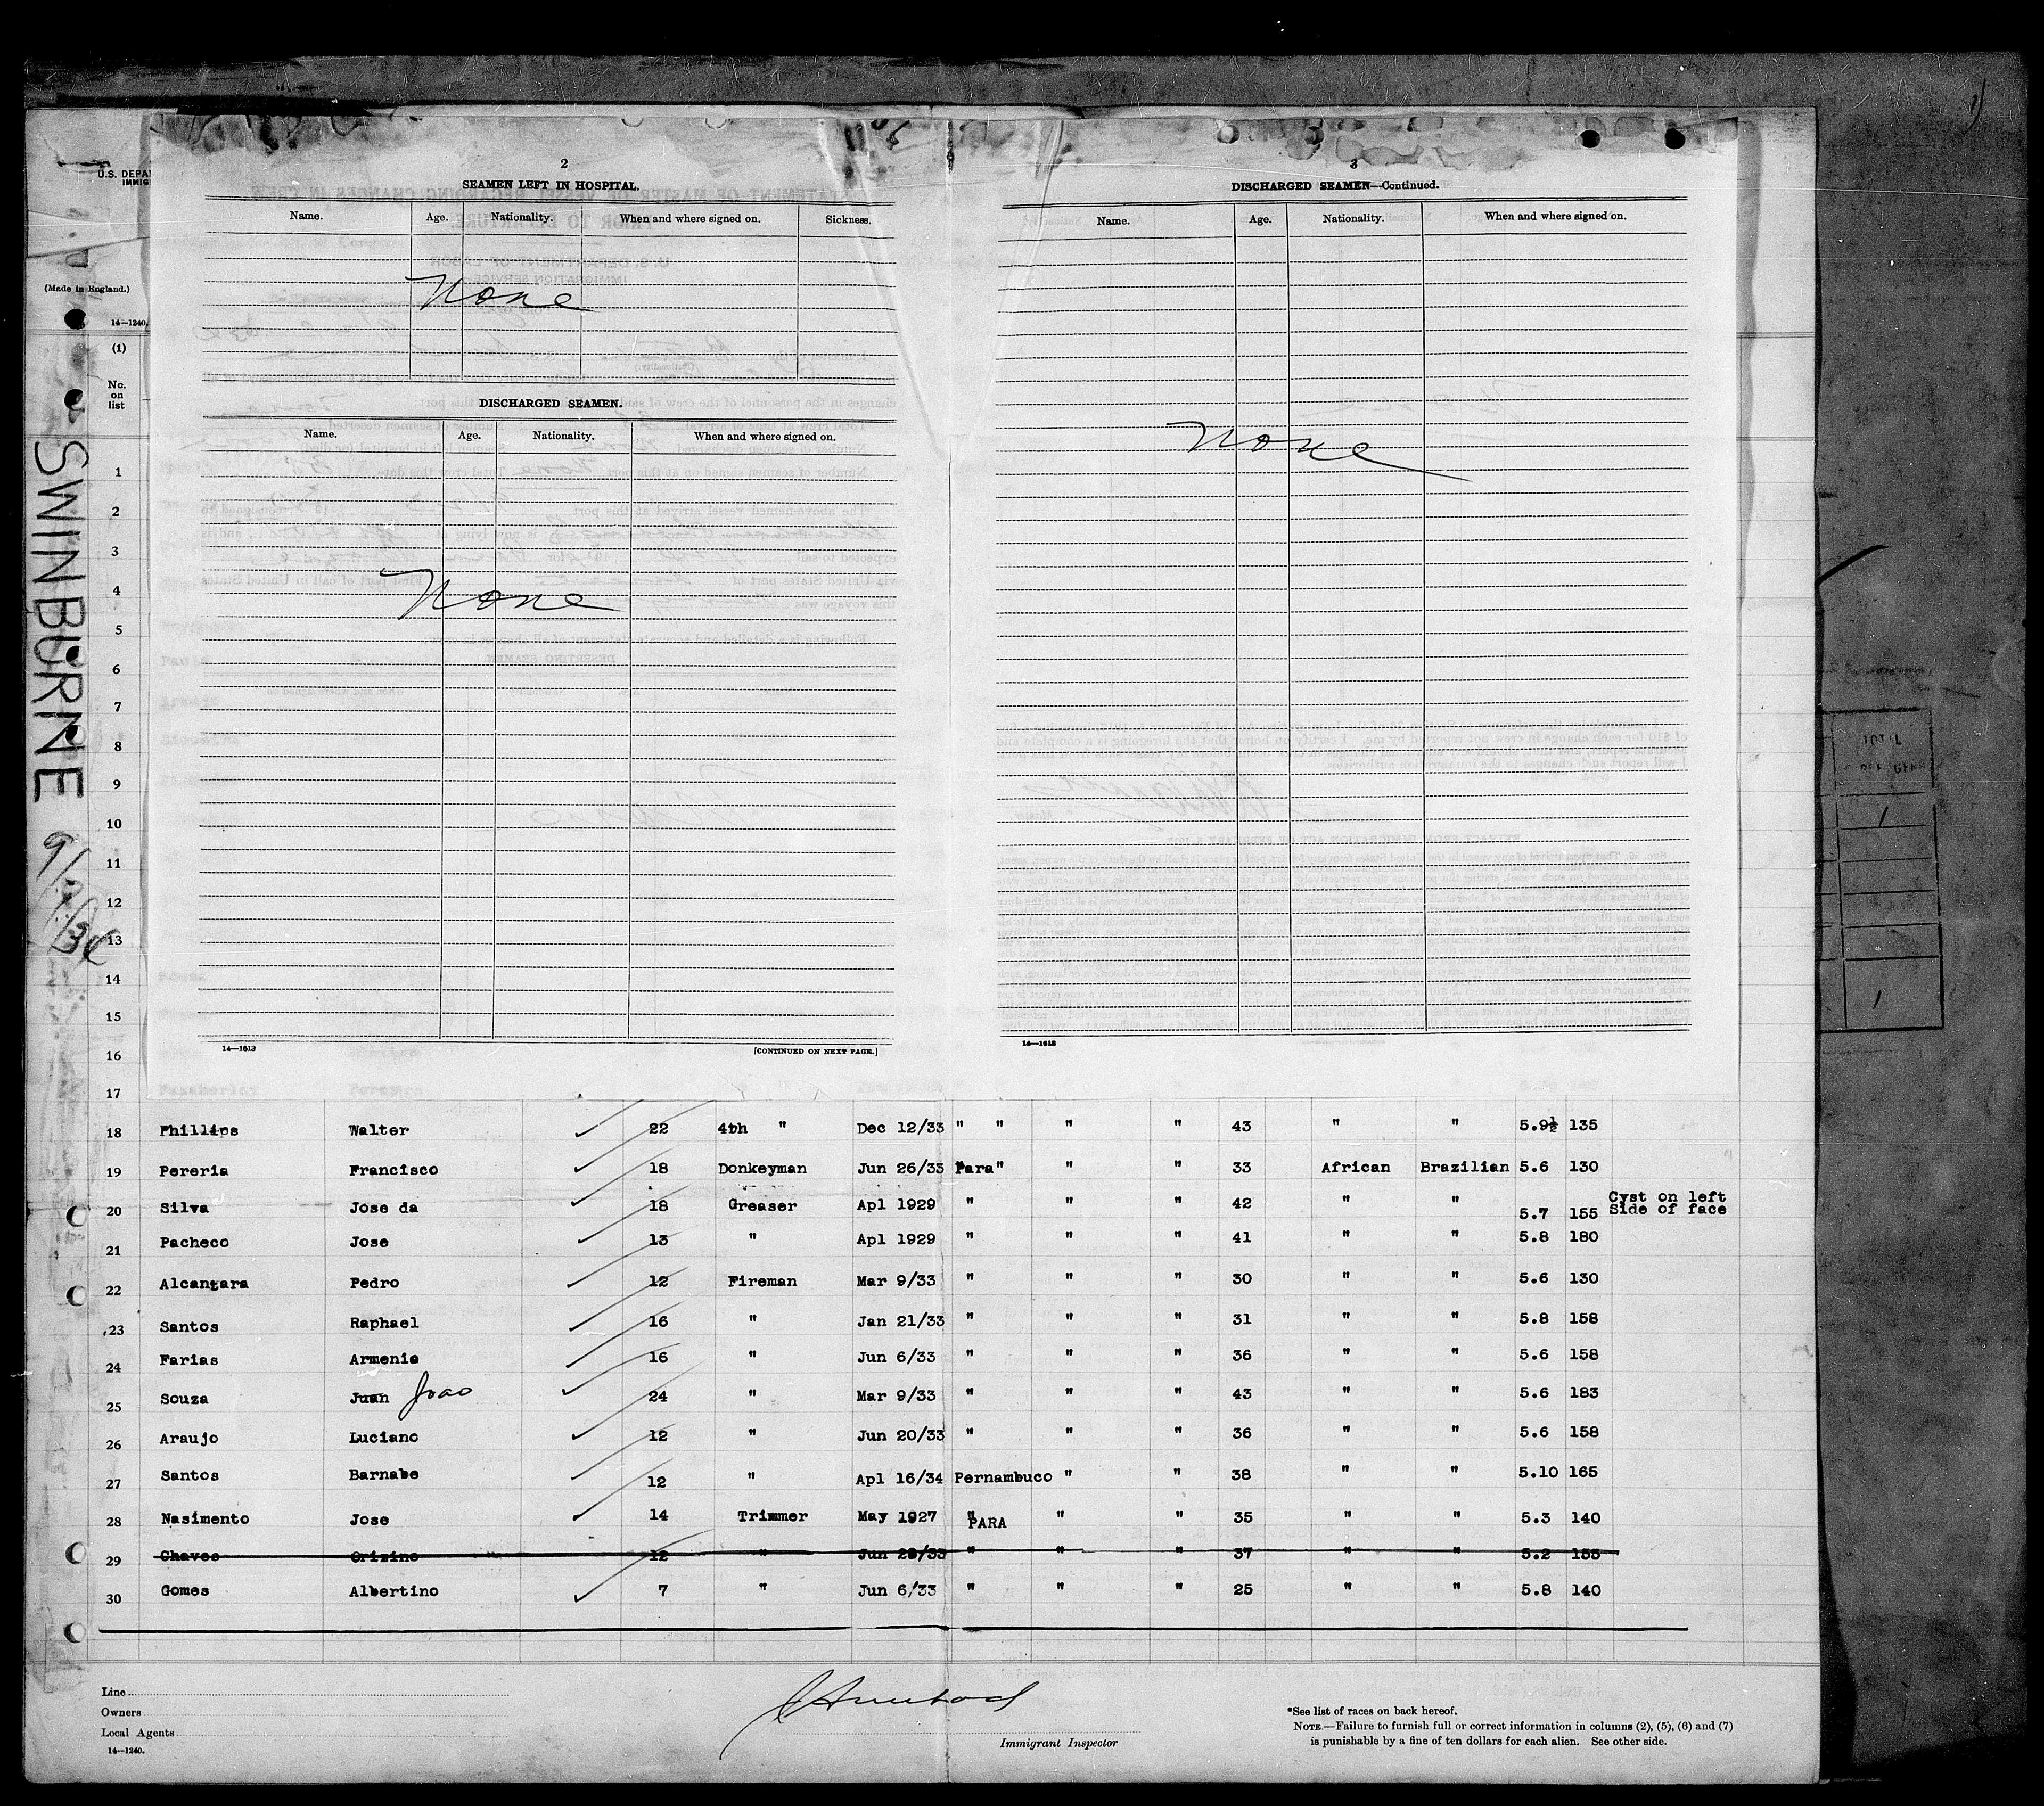 U.S. DEPA
IMMIG
(Made in England.)
14—1240.
(1)
No.
on
list
SWINBURNE
2
SEAMEN LEFT IN HOSPITAL.
Name. Age. Nationality. When and where signed on. Sickness.
None
DISCHARGED SEAMEN.
Name. Age. Nationality. When and where signed on.
None
14—1613 [CONTINUED ON NEXT PAGE.]
3
DISCHARGED SEAMEN—Continued.
Name. Age. Nationality. When and where signed on.
None
14—1613
1
2
3
4
5
6
7
8
9
10
11
12
13
14
15
16
17
18 Phillips Walter 22 4th " Dec 12/33 " " " " 43 " " 5.9½ 135
19 Pereria Francisco 18 Donkeyman Jun 26/33 Para" " " 33 African Brazilian 5.6 130
20 Silva Jose da 18 Greaser Apl 1929 " " " 42 " " 5.7 155 Cyst on left
Side of face
21 Pacheco Jose 13 " Apl 1929 " " " 41 " " 5.8 180
22 Alcantara Pedro 12 Fireman Mar 9/33 " " " 30 " " 5.6 130
23 Santos Raphael 16 " Jan 21/33 " " " 31 " " 5.8 158
24 Farias Armenio 16 " Jun 6/33 " " " 36 " " 5.6 158
25 Souza Juan Joao 24 " Mar 9/33 " " " 43 " " 5.6 183
26 Araujo Luciano 12 " Jun 20/33 " " " 36 " " 5.6 158
27 Santos Barnabe 12 " Apl 16/34 Pernambuco " " 38 " " 5.10 165
28 Nasimento Jose 14 Trimmer May 1927 " PARA " " 35 " " 5.3 140
29 Chaves Orizino 12 " Jun 28/33 " " " 37 " " 5.2 155
30 Gomes Albertino 7 " Jun 6/33 " " " 25 " " 5.8 140
Line
Owners
Local Agents
14—1240.
Immigrant Inspector
*See list of races on back hereof.
NOTE.—Failure to furnish full or correct information in columns (2), (5), (6) and (7)
is punishable by a fine of ten dollars for each alien. See other side.